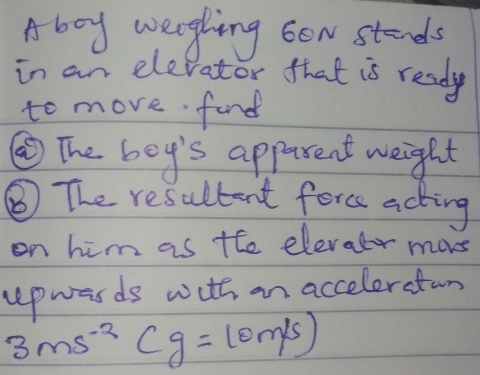 A boy weighing 60N stands
in an elevator that is ready
to move. find
(a) The boy's apparent weight
(b) The resultant force acting
on him as the elevator moves
upwards with an acceleration
3ms⁻² (g = 10m/s)